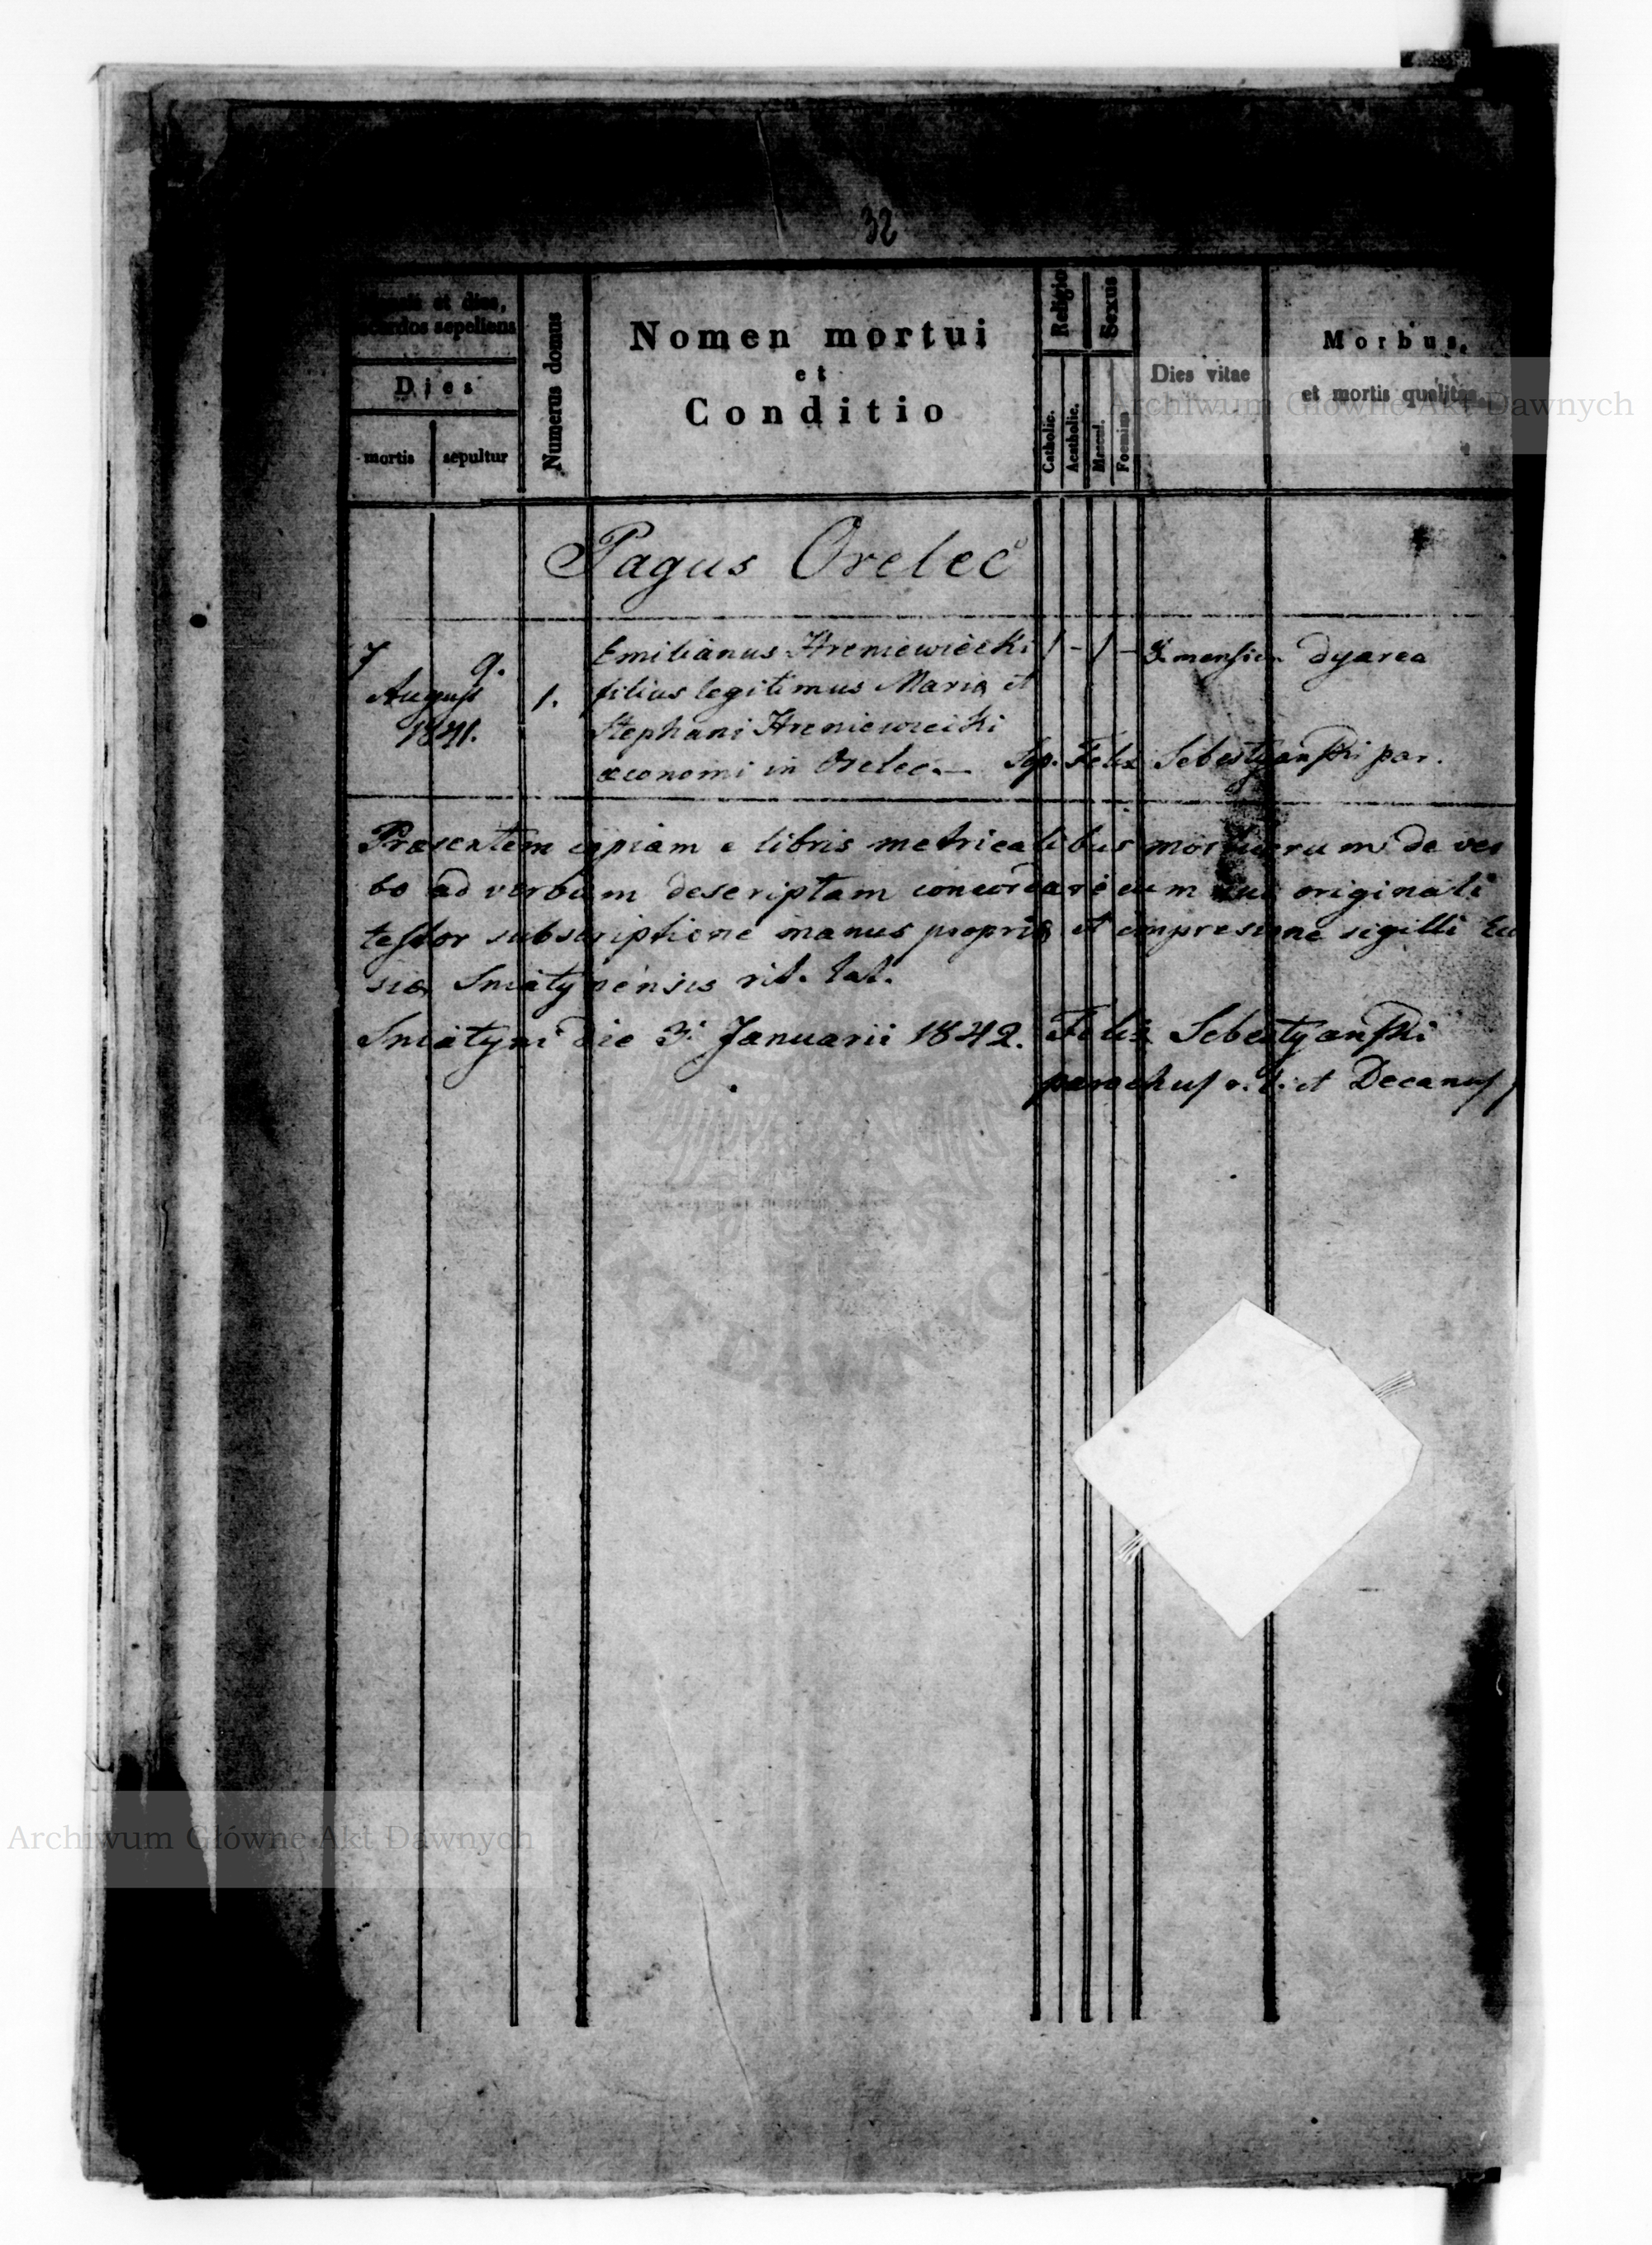 32
et dies,
sepeliens
Dies
mortis sepultur
Numerus domus
Nomen mortui
et
Conditio
Religio
Catholic.
Acatholic.
Sexus
Mascul.
Foemin.
Dies vitae
Morbus,
et mortis qualitas
Archiwum Główne Akt Dawnych
Pagus Orelec
7 9.
August
1841.
1.
Emilianus Hreniewiecki 1 - 1 - mensium dyarea
filius legitimus Maria et
Stephani Hreniewiecki
œconomi in Orelec.— Sep. Felix Sebestyanski par.
Præsentem copiam e libris metricalibus mortuorum de ver
bo ad verbum descriptam concordare cum suo originali
testor subscriptione manus propriæ et impresione sigilli Ec
siæ Sniatynensis rit. lat.
Sniatyni die 3. Januarii 1842. Felix Sebestyanski
parochus r. l. et Decanus
AKT DAWNYCH
Archiwum Główne Akt Dawnych